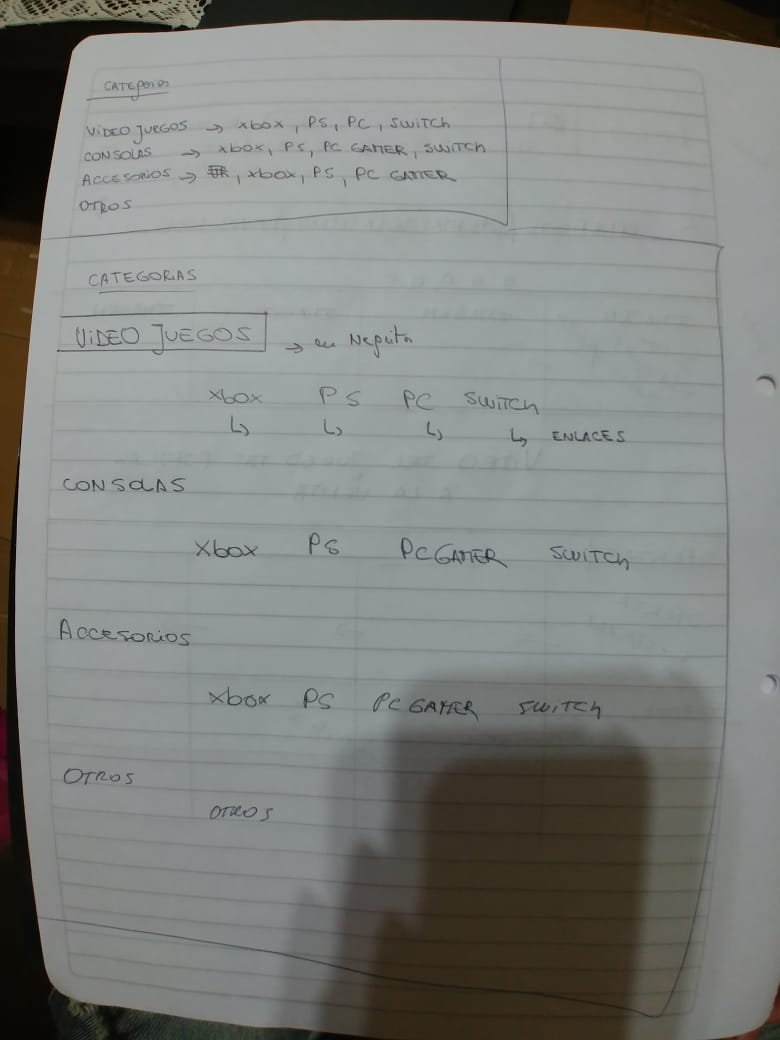 CATEGORIAS
VIDEO JUEGOS → xbox, PS, PC, SWITCH
CONSOLAS → xbox, PS, PC GAMER, SWITCH
ACCESORIOS → , xbox, PS, PC GAMER
OTROS
CATEGORIAS
VIDEO JUEGOS → en Negrita
xbox PS PC SWITCH
↳ ↳ ↳ ↳ ENLACES
CONSOLAS
Xbox PS PC GAMER SWITCH
ACCESORIOS
Xbox PS PC GAMER SWITCH
OTROS
OTROS